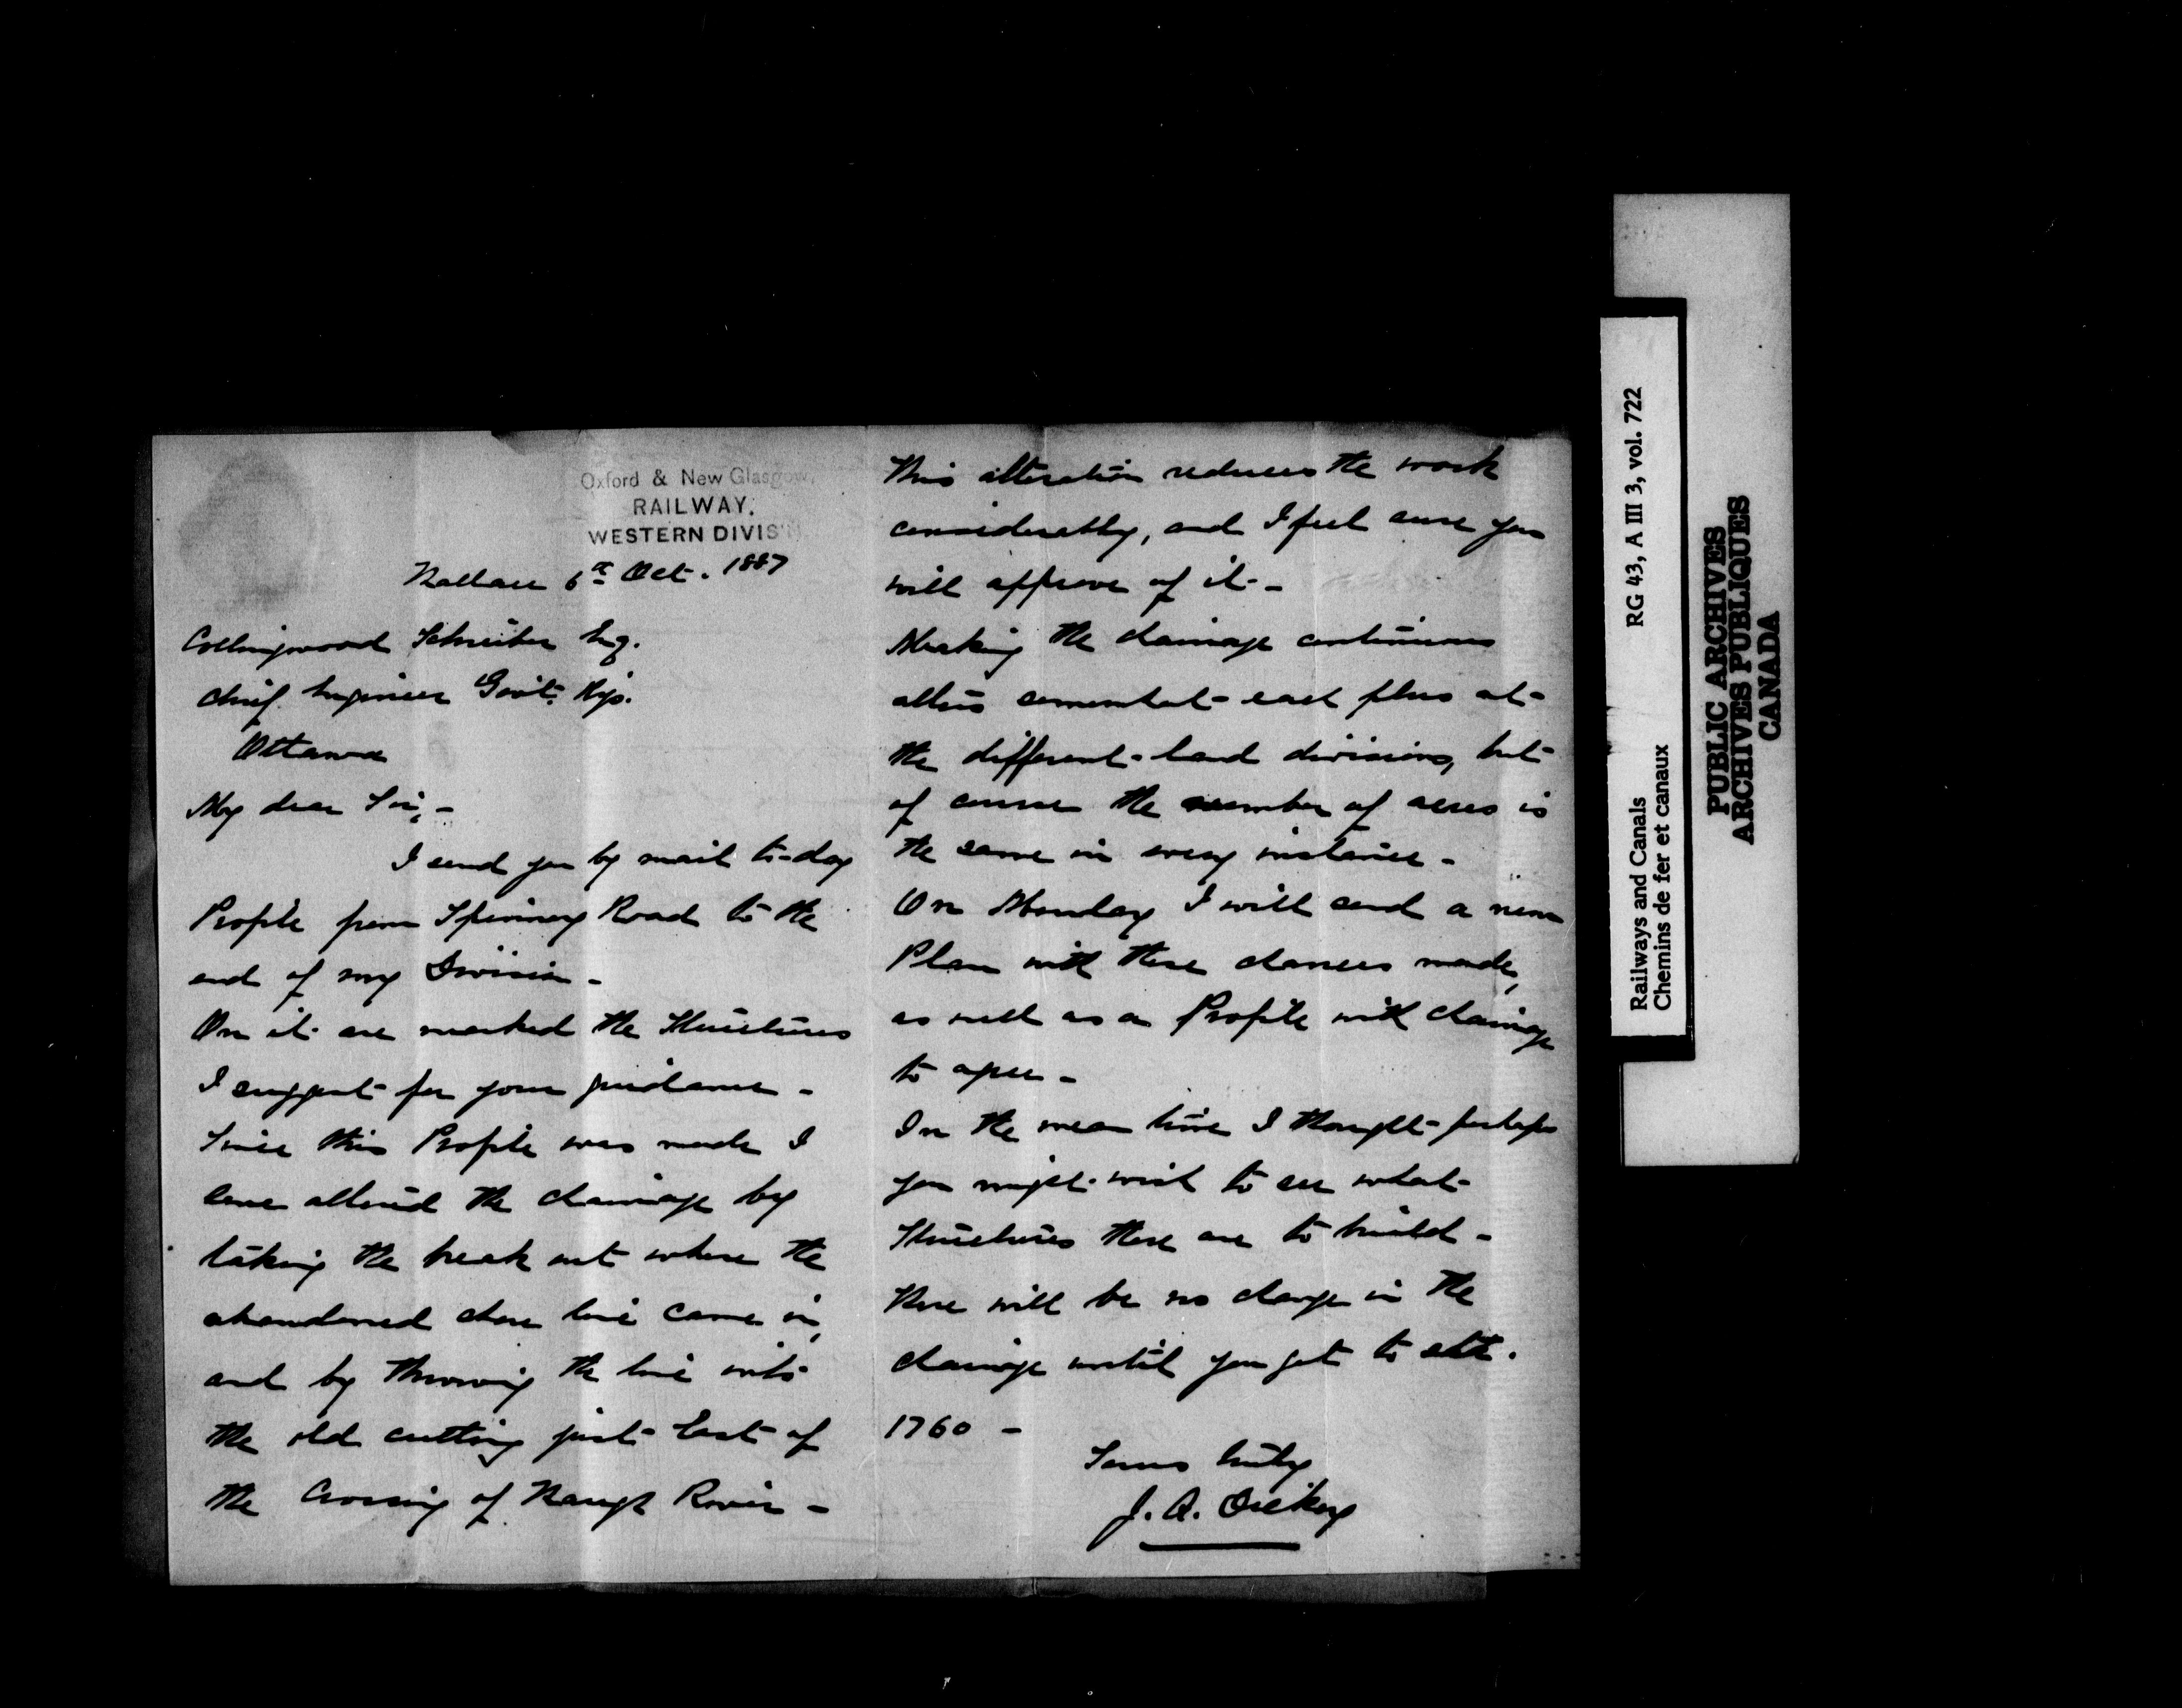 Oxford & New Glasgow,
RAILWAY.
WESTERN DIVIS'N
Wallace 6th Oct. 1887
Collingwood Schreiber Esq.
Chief Engineer Govt. Rys.
Ottawa
My dear Sir,-
I send you by mail to-day
Profile from Spinney Road to the
end of my Division -
On it are marked the Structures
I suggest for your guidance -
Since this Profile was made I
have altered the chainage by
taking the break out where the
abandoned shore line came in,
and by throwing the line into
the old cutting just East of
the Crossing of Waugh River -
This alteration reduces the work
considerably, and I feel sure you
will approve of it -
Making the chainage continuous
alters somewhat each plus at
the different land divisions, but
of course the number of acres is
the same in every instance -
On Monday I will send a new
Plan with these changes made,
as well as a Profile with chainage
to agree -
In the mean time I thought perhaps
you might wish to see what
Structures there are to build -
There will be no change in the
chainage until you get to stn.
1760 -
Yours truly
J. A. Dickey
Railways and Canals RG 43, A III 3, vol. 722
Chemins de fer et canaux
PUBLIC ARCHIVES
ARCHIVES PUBLIQUES
CANADA